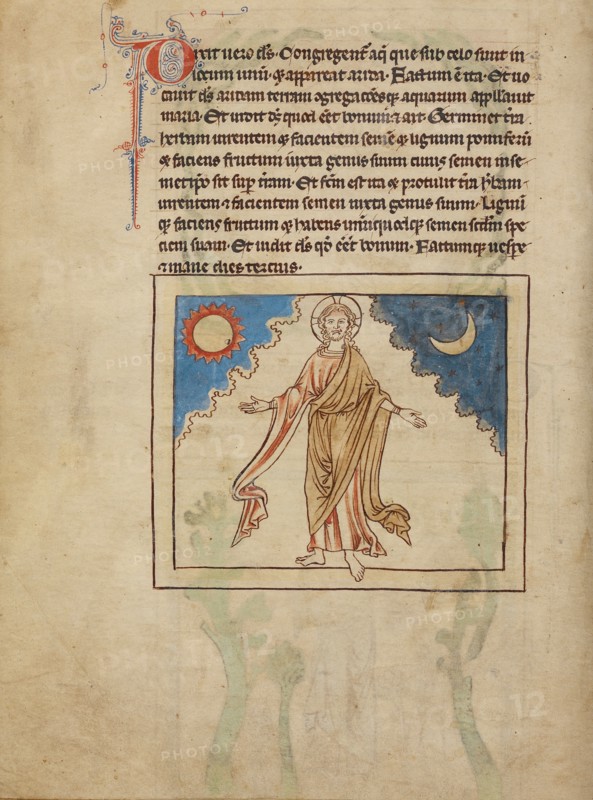 Dixit vero ds. Congregent aq̄ que sub celo sunt in
locum unū. ⁊ appareat arida. Factum ē ita. Et uo
cauit ds aridam terram ⁊gregacōesq̄ aquarum appllauit
maria. Et uidit ds quod eēt bonum ⁊ ait. Germinet tr̄a
herbam uirentem ⁊ facientem semē ⁊ lignum pomiferū
⁊ faciens fructum iuxta genus suum cuius semen in se
metip̄o sit sup̄ tr̄am. Et fc̄m est ita ⁊ protulit tr̄a hr̄bam
uirentem ⁊ facientem semen iuxta genus suum. Lignū
q̄ faciens fructum ⁊ habens unūquodq̄ semen scdm̄ spe
ciem suam. Et uidit ds qđ eēt bonum. Factumq̄ uesp̄e
⁊ mane dies tercius.
PHOTO12